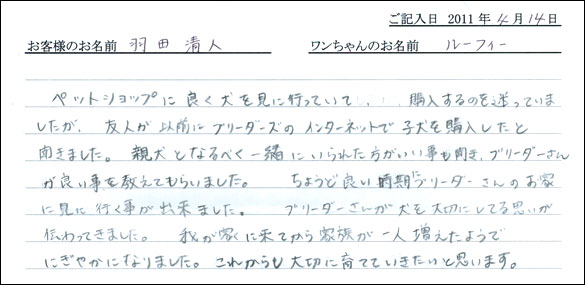 ご記入日 2011年4月14日
お客様のお名前 羽田 清人 ワンちゃんのお名前 ルーフィー
ペットショップに良く犬を見に行っていて、、購入するのを迷っていま
したが、友人が以前にブリーダーズのインターネットで子犬を購入したと
聞きました。親犬となるべく一緒にいられた方がいい事も聞き、ブリーダーさん
が良い事を教えてもらいました。 ちょうど良い時期にブリーダーさんのお家
に見に行く事が出来ました。 ブリーダーさんが犬を大切にしてる思いが
伝わってきました。 我が家に来てから家族が一人増えたようで
にぎやかになりました。これからも大切に育てていきたいと思います。